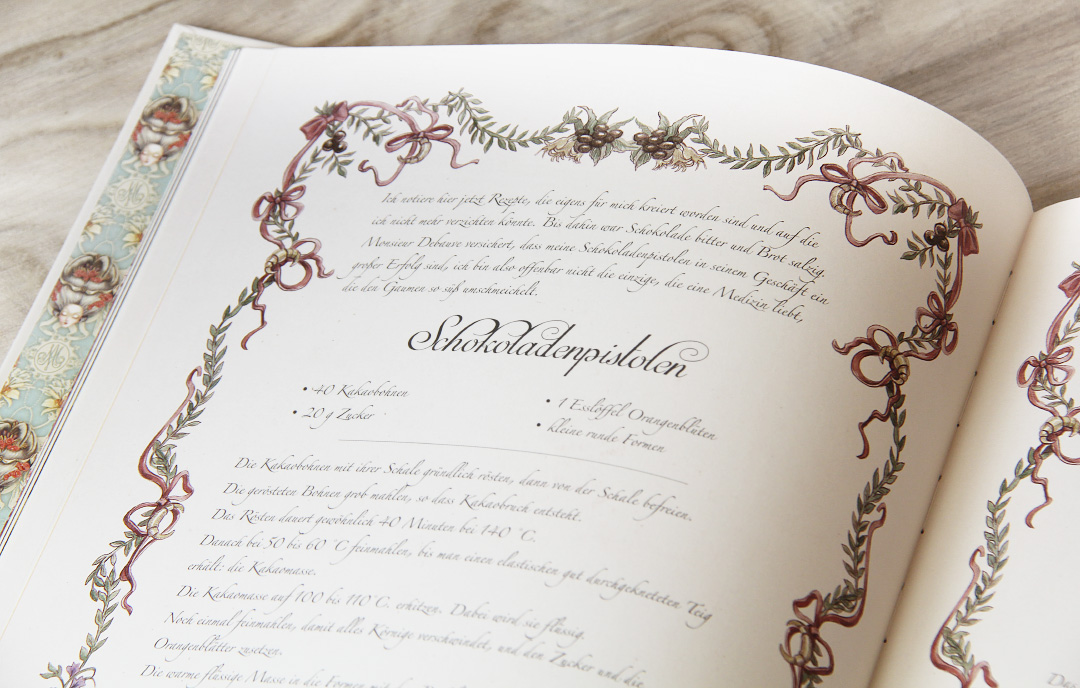 Ich notiere hier jetzt Rezepte, die eigens für mich kreiert worden sind und auf die
ich nicht mehr verzichten könnte. Bis dahin war Schokolade bitter und Brot salzig.
Monsieur Debauve versichert, dass meine Schokoladenpistolen in seinem Geschäft ein
großer Erfolg sind, ich bin also offenbar nicht die einzige, die eine Medizin liebt,
die den Gaumen so süß umschmeichelt.
Schokoladenpistolen
• 40 Kakaobohnen
• 20 g Zucker
• 1 Esslöffel Orangenblüten
• kleine runde Formen
Die Kakaobohnen mit ihrer Schale gründlich rösten, dann von der Schale befreien.
Die gerösteten Bohnen grob mahlen, so dass Kakaobruch entsteht.
Das Rösten dauert gewöhnlich 40 Minuten bei 140 °C.
Danach bei 50 bis 60 °C feinmahlen, bis man einen elastischen gut durchgekneteten Teig
erhält: die Kakaomasse.
Die Kakaomasse auf 100 bis 110°C. erhitzen. Dabei wird sie flüssig.
Noch einmal feinmahlen, damit alles Körnige verschwindet, und den Zucker und die
Orangenblätter zusetzen.
Die warme flüssige Masse in die Formen mit
Das